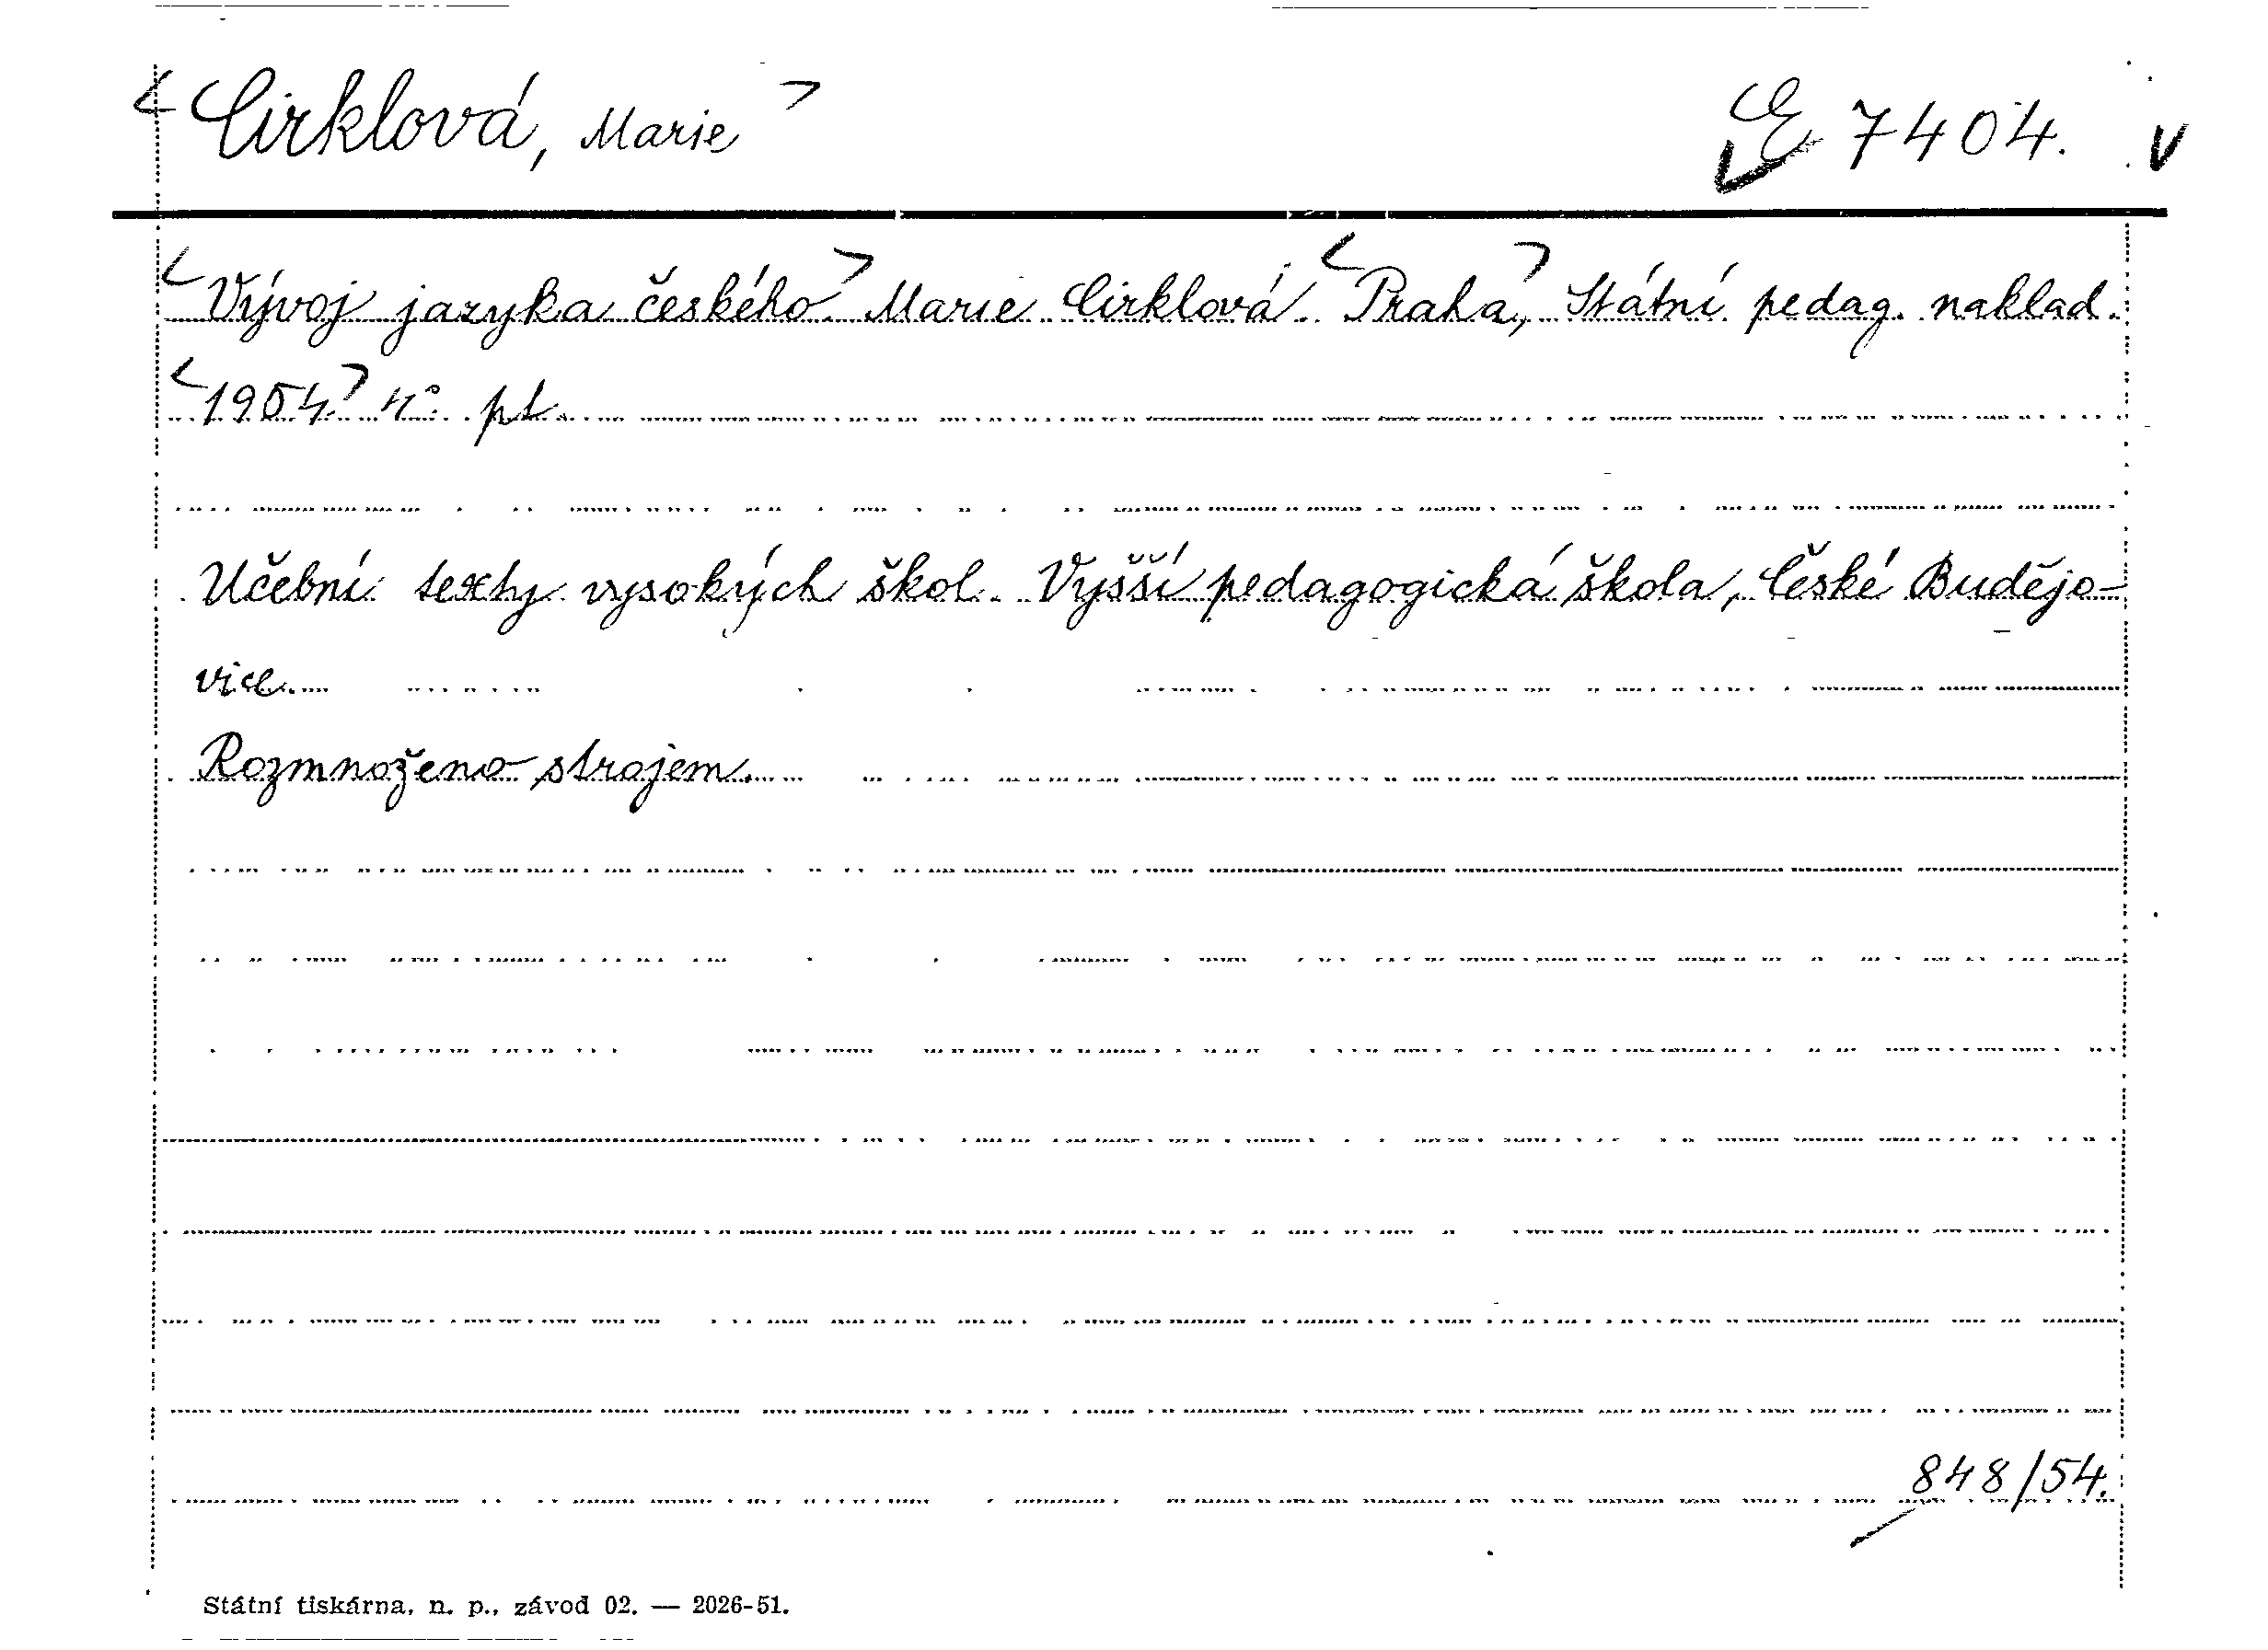 <Cirklová, Marie> E 7404. v
<Vývoj jazyka českého.> Marie Cirklová. <Praha,> Státní pedag. naklad.
<1954.> 4°. pt.
Učební texty vysokých škol. Vyšší pedagogická škola, České Budějo-
vice.
Rozmnoženo strojem.
848/54.
Státní tiskárna, n. p., závod 02. — 2026-51.